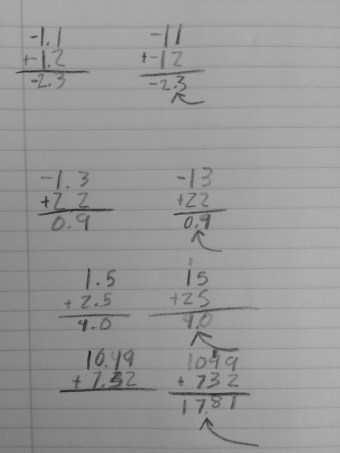 -1.1 -11
+-1.2 +-12
-2.3 -2.3
-1.3 -13
+2.2 +22
0.9 0.9
1
1.5 15
+2.5 +25
4.0 4.0
1
10.49 1049
+7.32 +732
17.81